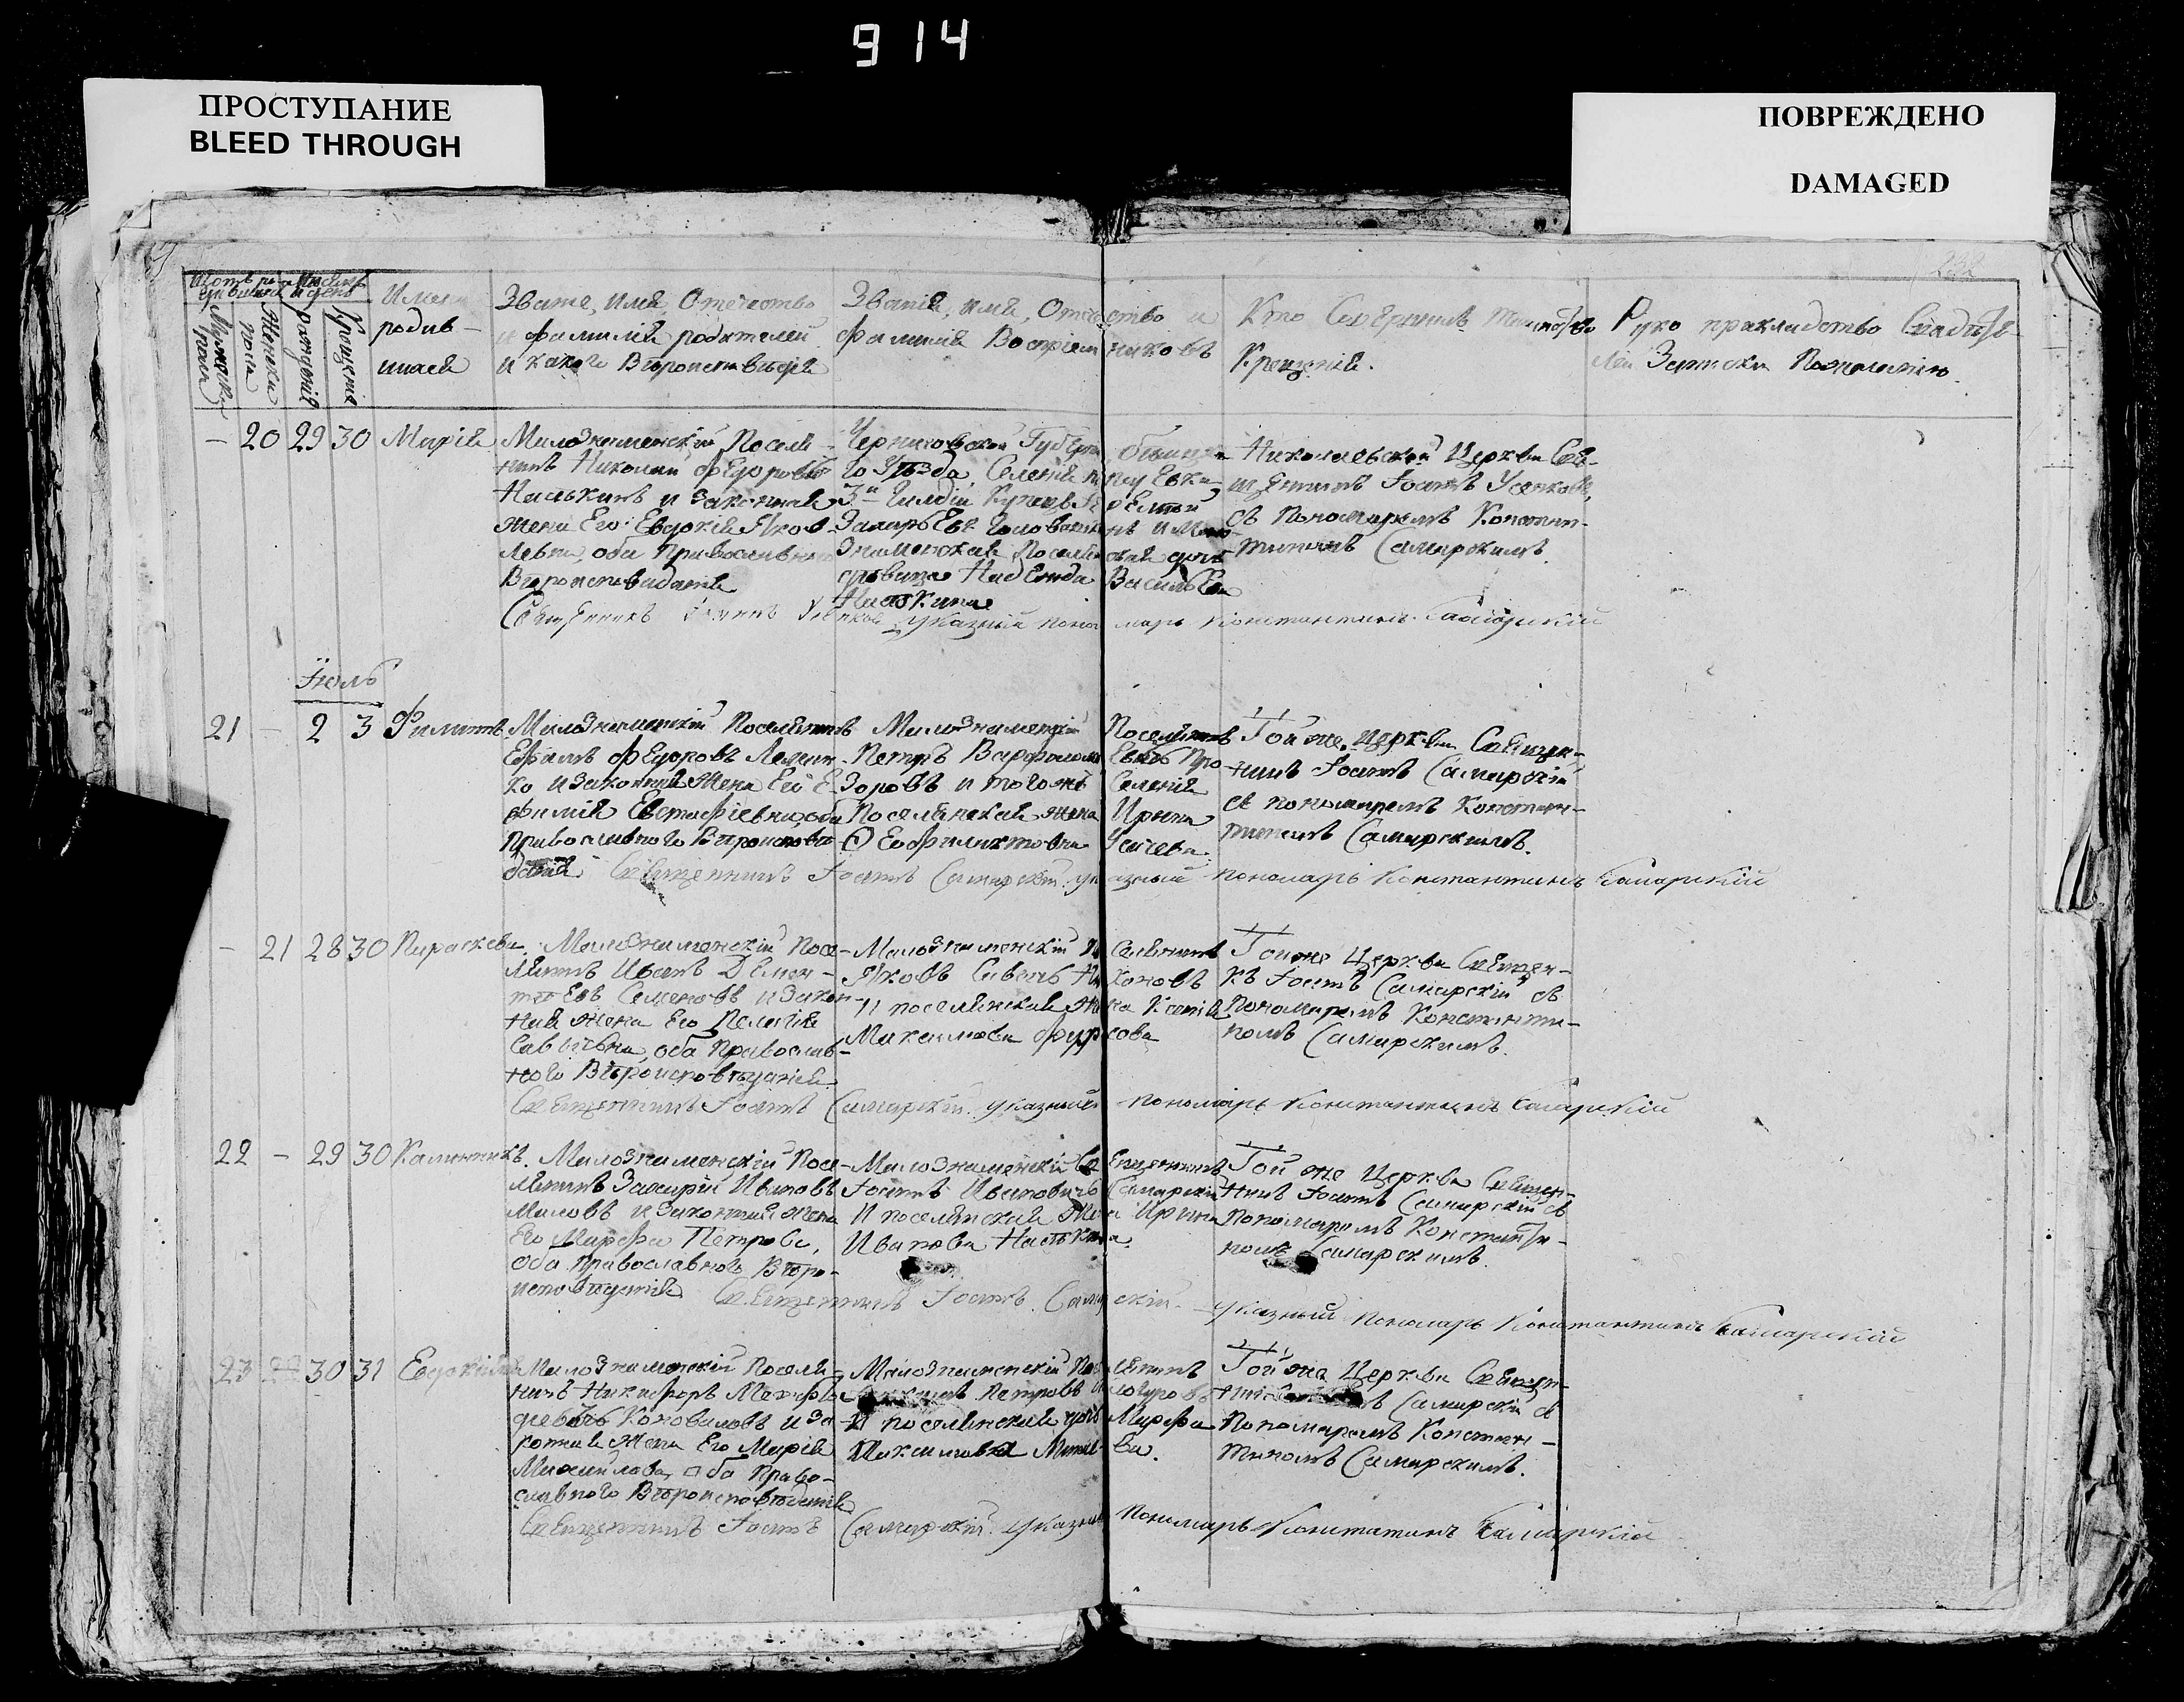 914
ПРОСТУПАНИЕ
BLEED THROUGH
ПОВРЕЖДЕНО
DAMAGED
232
Имена
родив-
шихся
Званіе, имя, Отечество
и фамилія родителей
и какого Вѣроисповѣд.
Званіе, имя, Отечество и
Фамилія Воспріемниковъ
Кто Совершилъ таинство
Крещенія.
Руко прикладство Свидѣте-
Записки по желанію.
- 20 29 30 Марія
Малознаменскій Поселя-
нинъ Николай Федоровъ
Наськинъ и Законная
жена Его Евдокія Яков-
левна, оба Православнаго
Вѣроисповеданія
Черниговской Губерніи
го Уѣзда, Селенія
3й Гилдіи Купецъ
Знаменская Поселян
дѣвица Надежда Васильева
Наськина
Николаевской Церкви Свя-
щенникъ Іоаннъ Усенковъ,
съ Пономаремъ Констан-
тиномъ Самарскимъ.
Священникъ Іоаннъ Усенковъ указный пономарь Константинъ Самарскій
Іюль
21 - 2 3 Филиппъ
Малознаменскій Поселянинъ
Ефимъ Федоровъ Лемеш-
ко и Законная Жена Его Е-
фимія Евстафіевна, оба
Православного Вѣроиспове-
данія
Малознаменскій Поселянинъ
Петръ Варфоломеевъ Про-
зоровъ и тогожъ Селенія
Поселянская жена Ирина
Феофилактовна Усачева.
Той же Церкви Священ-
никъ Іоаннъ Самарскій
съ пономаремъ Констан-
тиномъ Самарскимъ.
Священникъ Іоаннъ Самарскій. указный пономарь Константинъ Самарскій
- 21 28 30 Параскева
Малознаменскій Посе-
лянинъ Иванъ Демен-
тьевъ Семеновъ и Закон-
ная жена Его Пелагія
Савична, оба Православ-
ного Вѣроисповѣданія.
Малознаменскій Поселянинъ
Яковъ Савичъ
И поселянская жена Ксенія
Максимова Фурсова
Той же Церкви Священ-
къ Іоаннъ Самарскій съ
Пономаремъ Константи-
номъ Самарскимъ.
Священникъ Іоаннъ Самарскій. указный пономарь Константинъ Самарскій
22 - 29 30 Калинникъ.
Малознаменскій Посе-
лянинъ Захарій Ивановъ
Маловъ и Законная жена
Его Марфа Петрова,
оба Православного Вѣро-
исповѣданія
Малознаменскій Священникъ
Іоаннъ Ивановичъ Самарскій
И поселянская Жена Ирина
Иванова Наськина.
Той же Церкви Священ-
никъ Іоаннъ Самарскій съ
Пономаремъ Константи-
номъ Самарскимъ.
Священникъ Іоаннъ Самарскій. указный Пономарь Константинъ Самарскій
23 30 31
Малознаменскій Поселя-
нинъ Никифоръ
Коноваловъ и За-
конная Жена Его Марія
Михайлова, оба Право-
славного Вѣроисповѣданія
Малознаменскій Поселянинъ
Петровъ
И поселянская дочь Марфа
Максимова
Той же Церкви Священ-
Самарскій съ
Пономаремъ Констан-
тиномъ Самарскимъ.
Священникъ Іоаннъ Самарскій. указный Пономарь Константинъ Самарскій